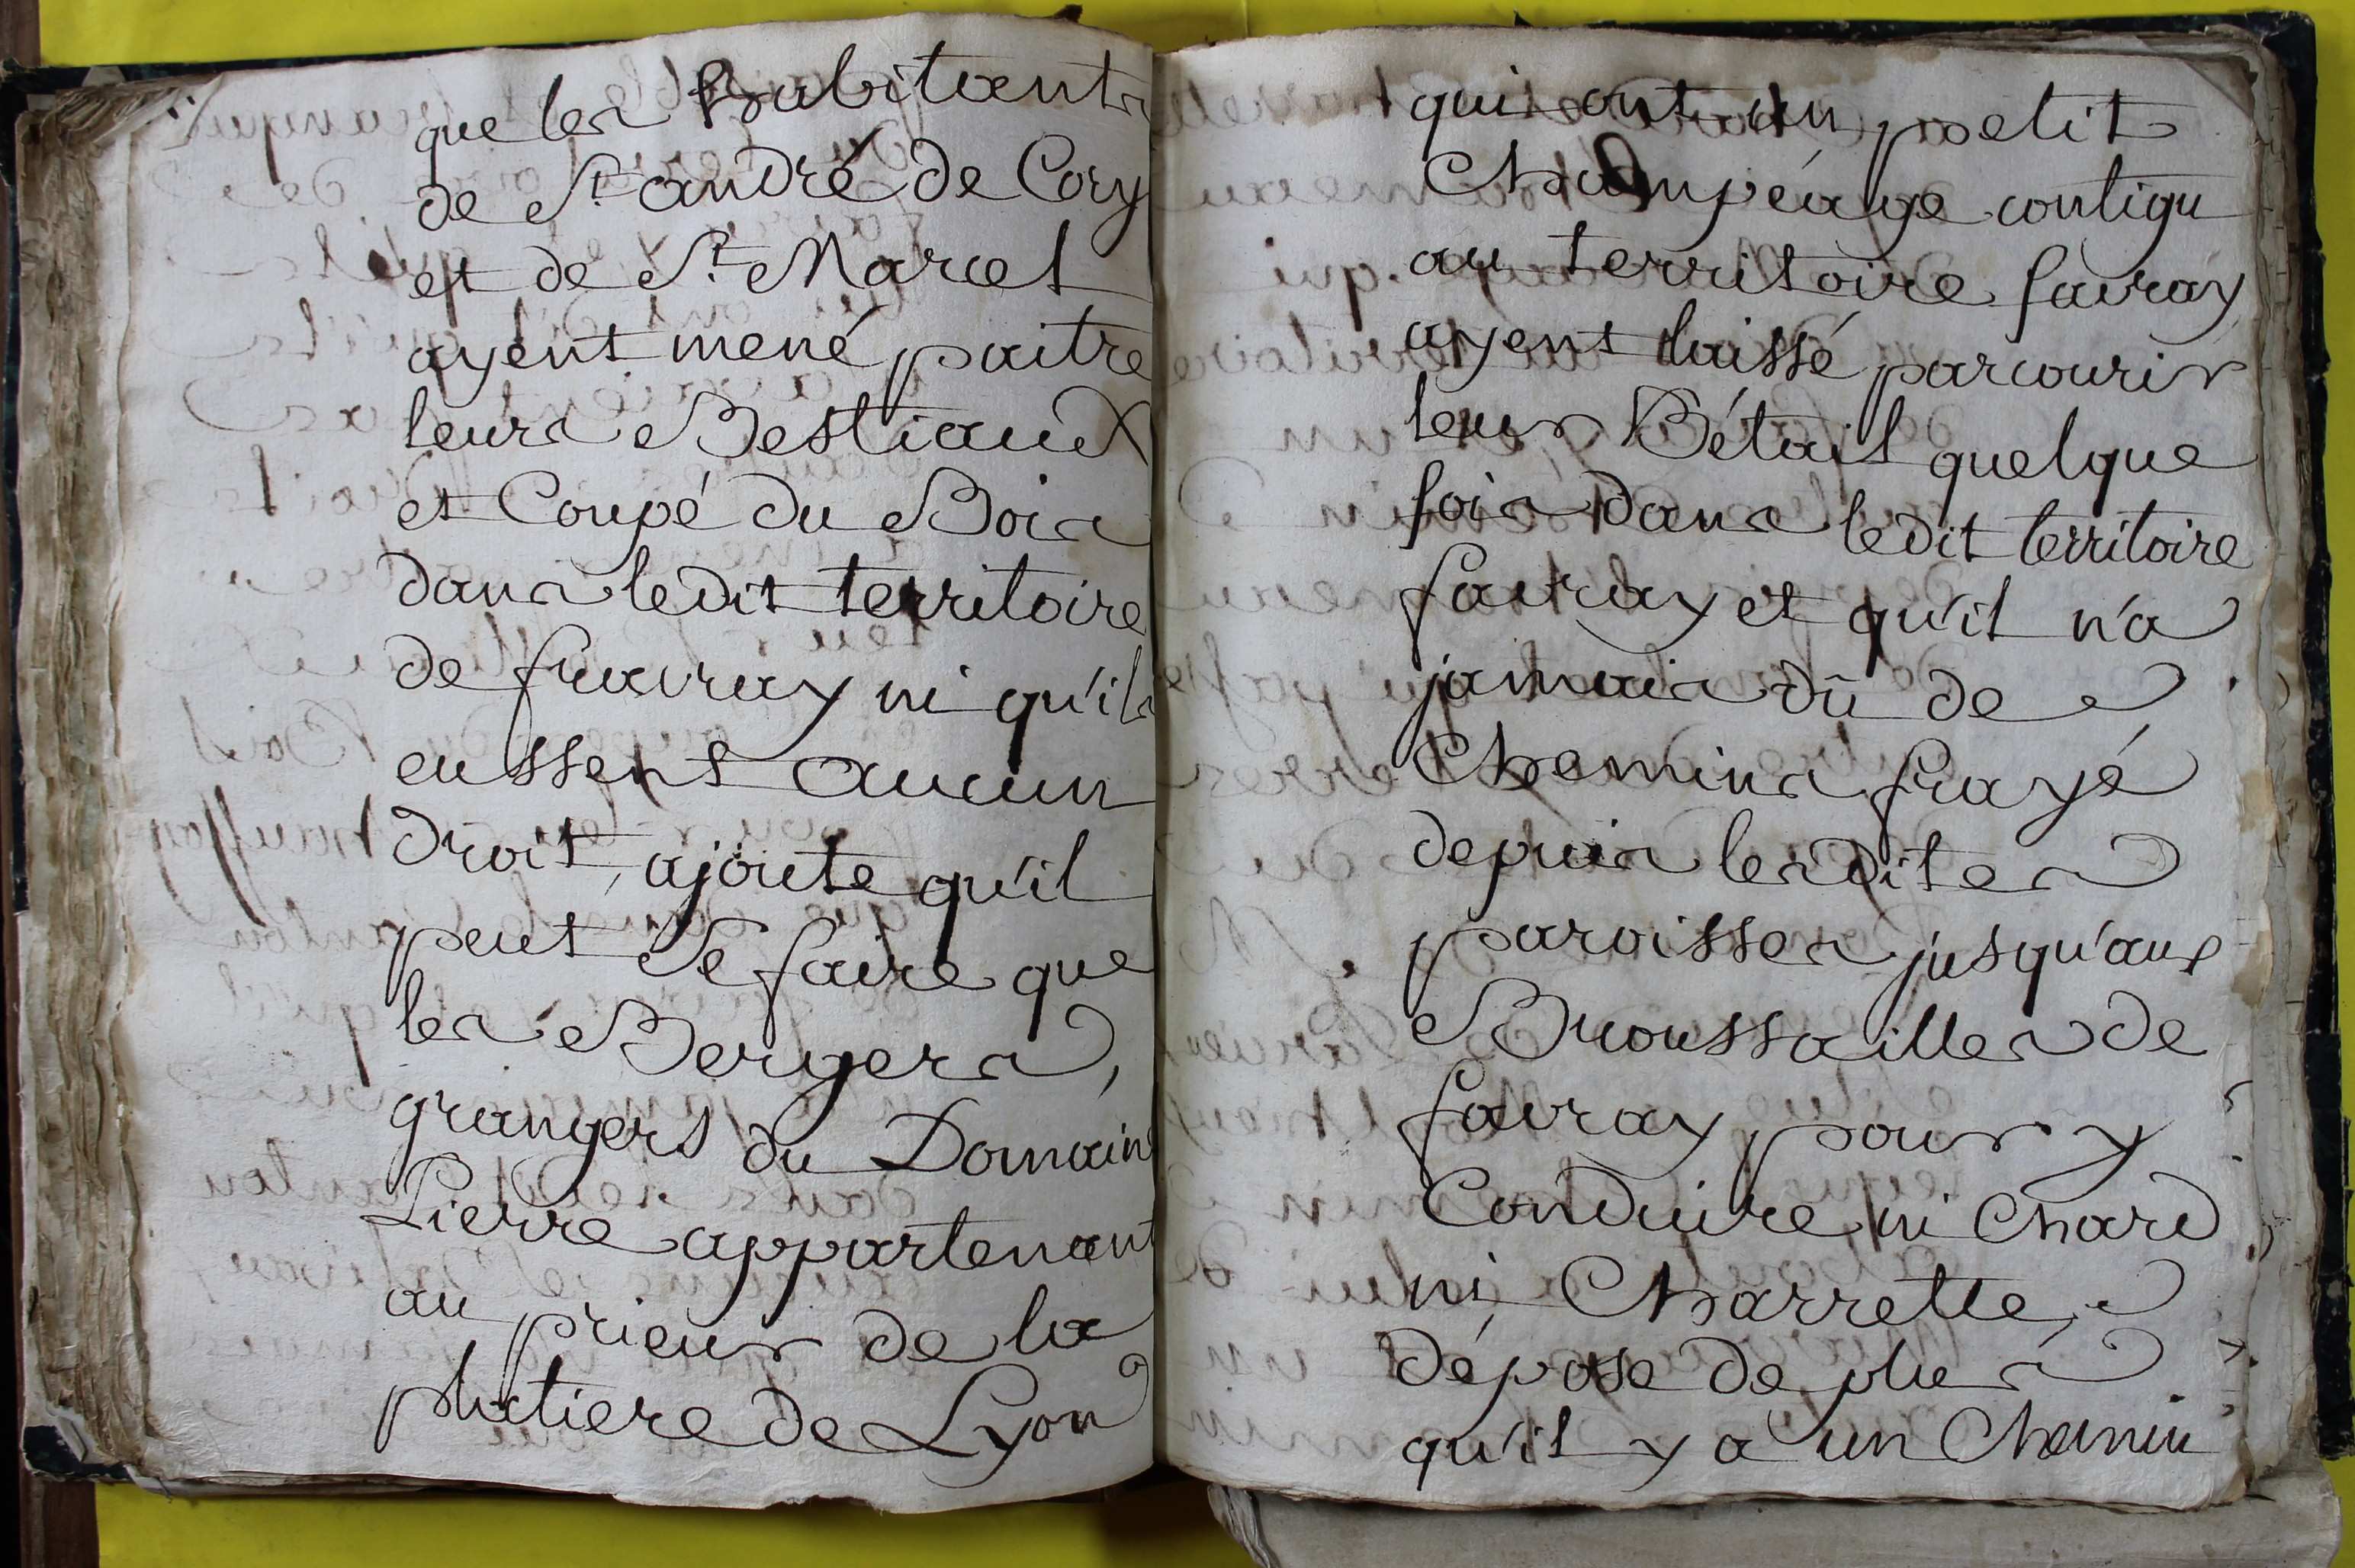 que les habitants
de St. andré de Cory
et de St. Marcel
ayent mené paitre
leurs Bestiaux
et Coupé du Bois
dans ledit territoire
de fravray ni qu'ils
eussent aucun
droit, ajoute qu'il
peut se faire que
les Bergers,
grangers du Domaine
Pierre appartenant
au prieur de la
platiere de Lyon
qui ont un petit
Champéage contigu
au territoire favray
ayent laissé parcourir
leur Bétail quelque
fois dans ledit territoire
favray et qu'il n'a
jamais dû de
Chemins frayé
depuis lesdites
paroisses jusqu'aux
Broussailles de
favray pour y
Conduire ni Chard
ni Charrette,
dépose de plus
qu'il y a un Chemin